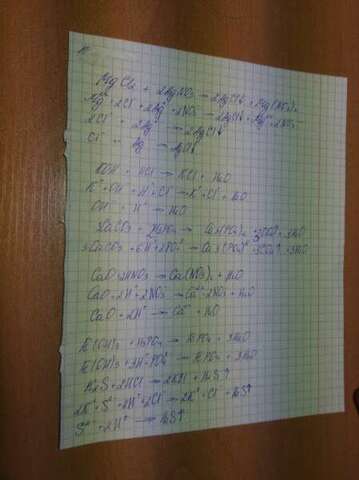 MgCl₂ + 2AgNO₃ → 2AgCl↓ + Mg(NO₃)₂
Mg²⁺ + 2Cl⁻ + 2Ag⁺ + 2NO₃⁻ → 2AgCl↓ + Mg²⁺ + 2NO₃⁻
2Cl⁻ + 2Ag⁺ → 2AgCl↓
Cl⁻ + Ag⁺ → AgCl↓
KOH + HCl → KCl + H₂O
K⁺ + OH⁻ + H⁺ + Cl⁻ → K⁺ + Cl⁻ + H₂O
OH⁻ + H⁺ → H₂O
3CaCO₃ + 2H₃PO₄ → Ca₃(PO₄)₂ + 3CO₂↑ + 3H₂O
3CaCO₃ + 6H⁺ + 2PO₄³⁻ → Ca₃(PO₄)₂ + 3CO₂↑ + 3H₂O
CaO + 2HNO₃ → Ca(NO₃)₂ + H₂O
CaO + 2H⁺ + 2NO₃⁻ → Ca²⁺ + 2NO₃⁻ + H₂O
CaO + 2H⁺ → Ca²⁺ + H₂O
Fe(OH)₃ + H₃PO₄ → FePO₄ + 3H₂O
Fe(OH)₃ + 3H⁺ + PO₄³⁻ → FePO₄ + 3H₂O
K₂S + 2HCl → 2KCl + H₂S↑
2K⁺ + S²⁻ + 2H⁺ + 2Cl⁻ → 2K⁺ + Cl⁻ + H₂S↑
S²⁻ + 2H⁺ → H₂S↑